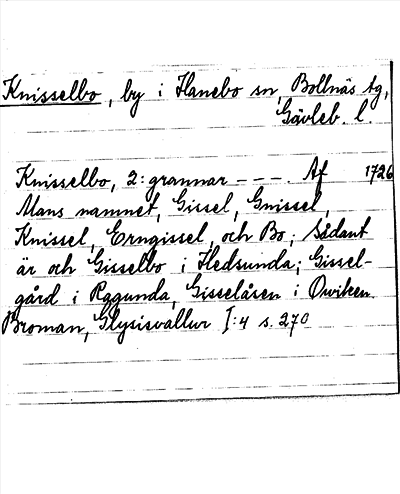 Knisselbo, by i Hanebo sn, Bollnäs tg,
Gävleb. l.
Knisselbo, 2: grannar - - - . Af 1726
Mans namnet, Gissel, Gnissel,
Knissel, Erngissel, och Bo; Sådant
är och Gisselbo i Hedsunda; Gissel-
gård i Raggunda, Gisselåsen i Owiken.
Broman, Glysisvallur I:4 s. 270